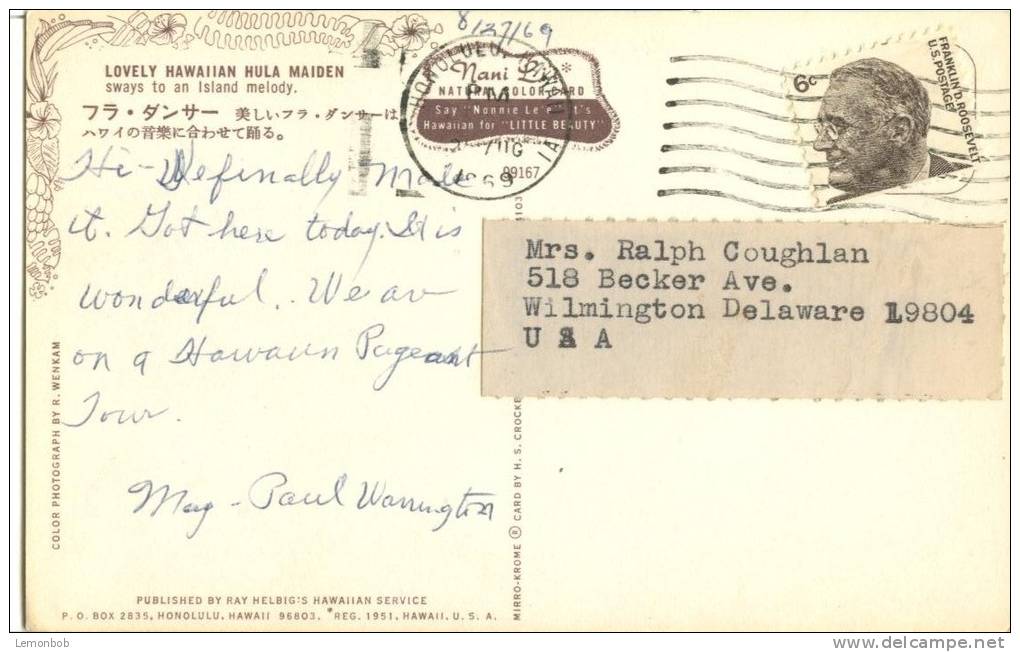 8/27/69
LOVELY HAWAIIAN HULA MAIDEN
sways to an Island melody.
フラ・ダンサー 美しいフラ・ダンサーは
ハワイの音樂に合わせて踊る。
Nani Li'i
NATURAL COLOR CARD
Say "Nonnie Le'e"
Hawaiian for "LITTLE BEAUTY"
89167
HONOLULU, HAWAII
PM
AUG
1969
6¢
FRANKLIN D. ROOSEVELT
U.S. POSTAGE
Hi- We finally made
it. Got here today. It is
wonderful. We are
on a Hawaiin Pageant
Tour.
May - Paul Warrington
Mrs. Ralph Coughlan
518 Becker Ave.
Wilmington Delaware 19804
U S A
COLOR PHOTOGRAPH BY R. WENKAM
MIRRO-KROME ® CARD BY H. S. CROCKE
PUBLISHED BY RAY HELBIG'S HAWAIIAN SERVICE
P. O. BOX 2835, HONOLULU, HAWAII 96803. *REG. 1951, HAWAII, U. S. A.
Lemonbob
www.delcampe.net